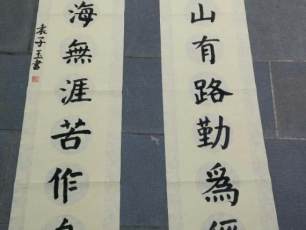 山有路勤為徑
海無涯苦作
袁子玉書